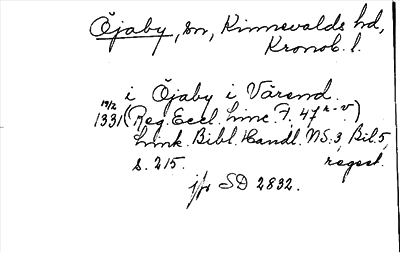 Öjaby, sn, Kinnevalds hd,
Kronob. l.
i Öjaby i Värend.
19/2
1331 (Reg. Eccl. Linc. F. 47 r-v.)
Link. Bibl. Handl. NS. 3, Bil. 5,
s. 215. regest.
jfr SD 2832.